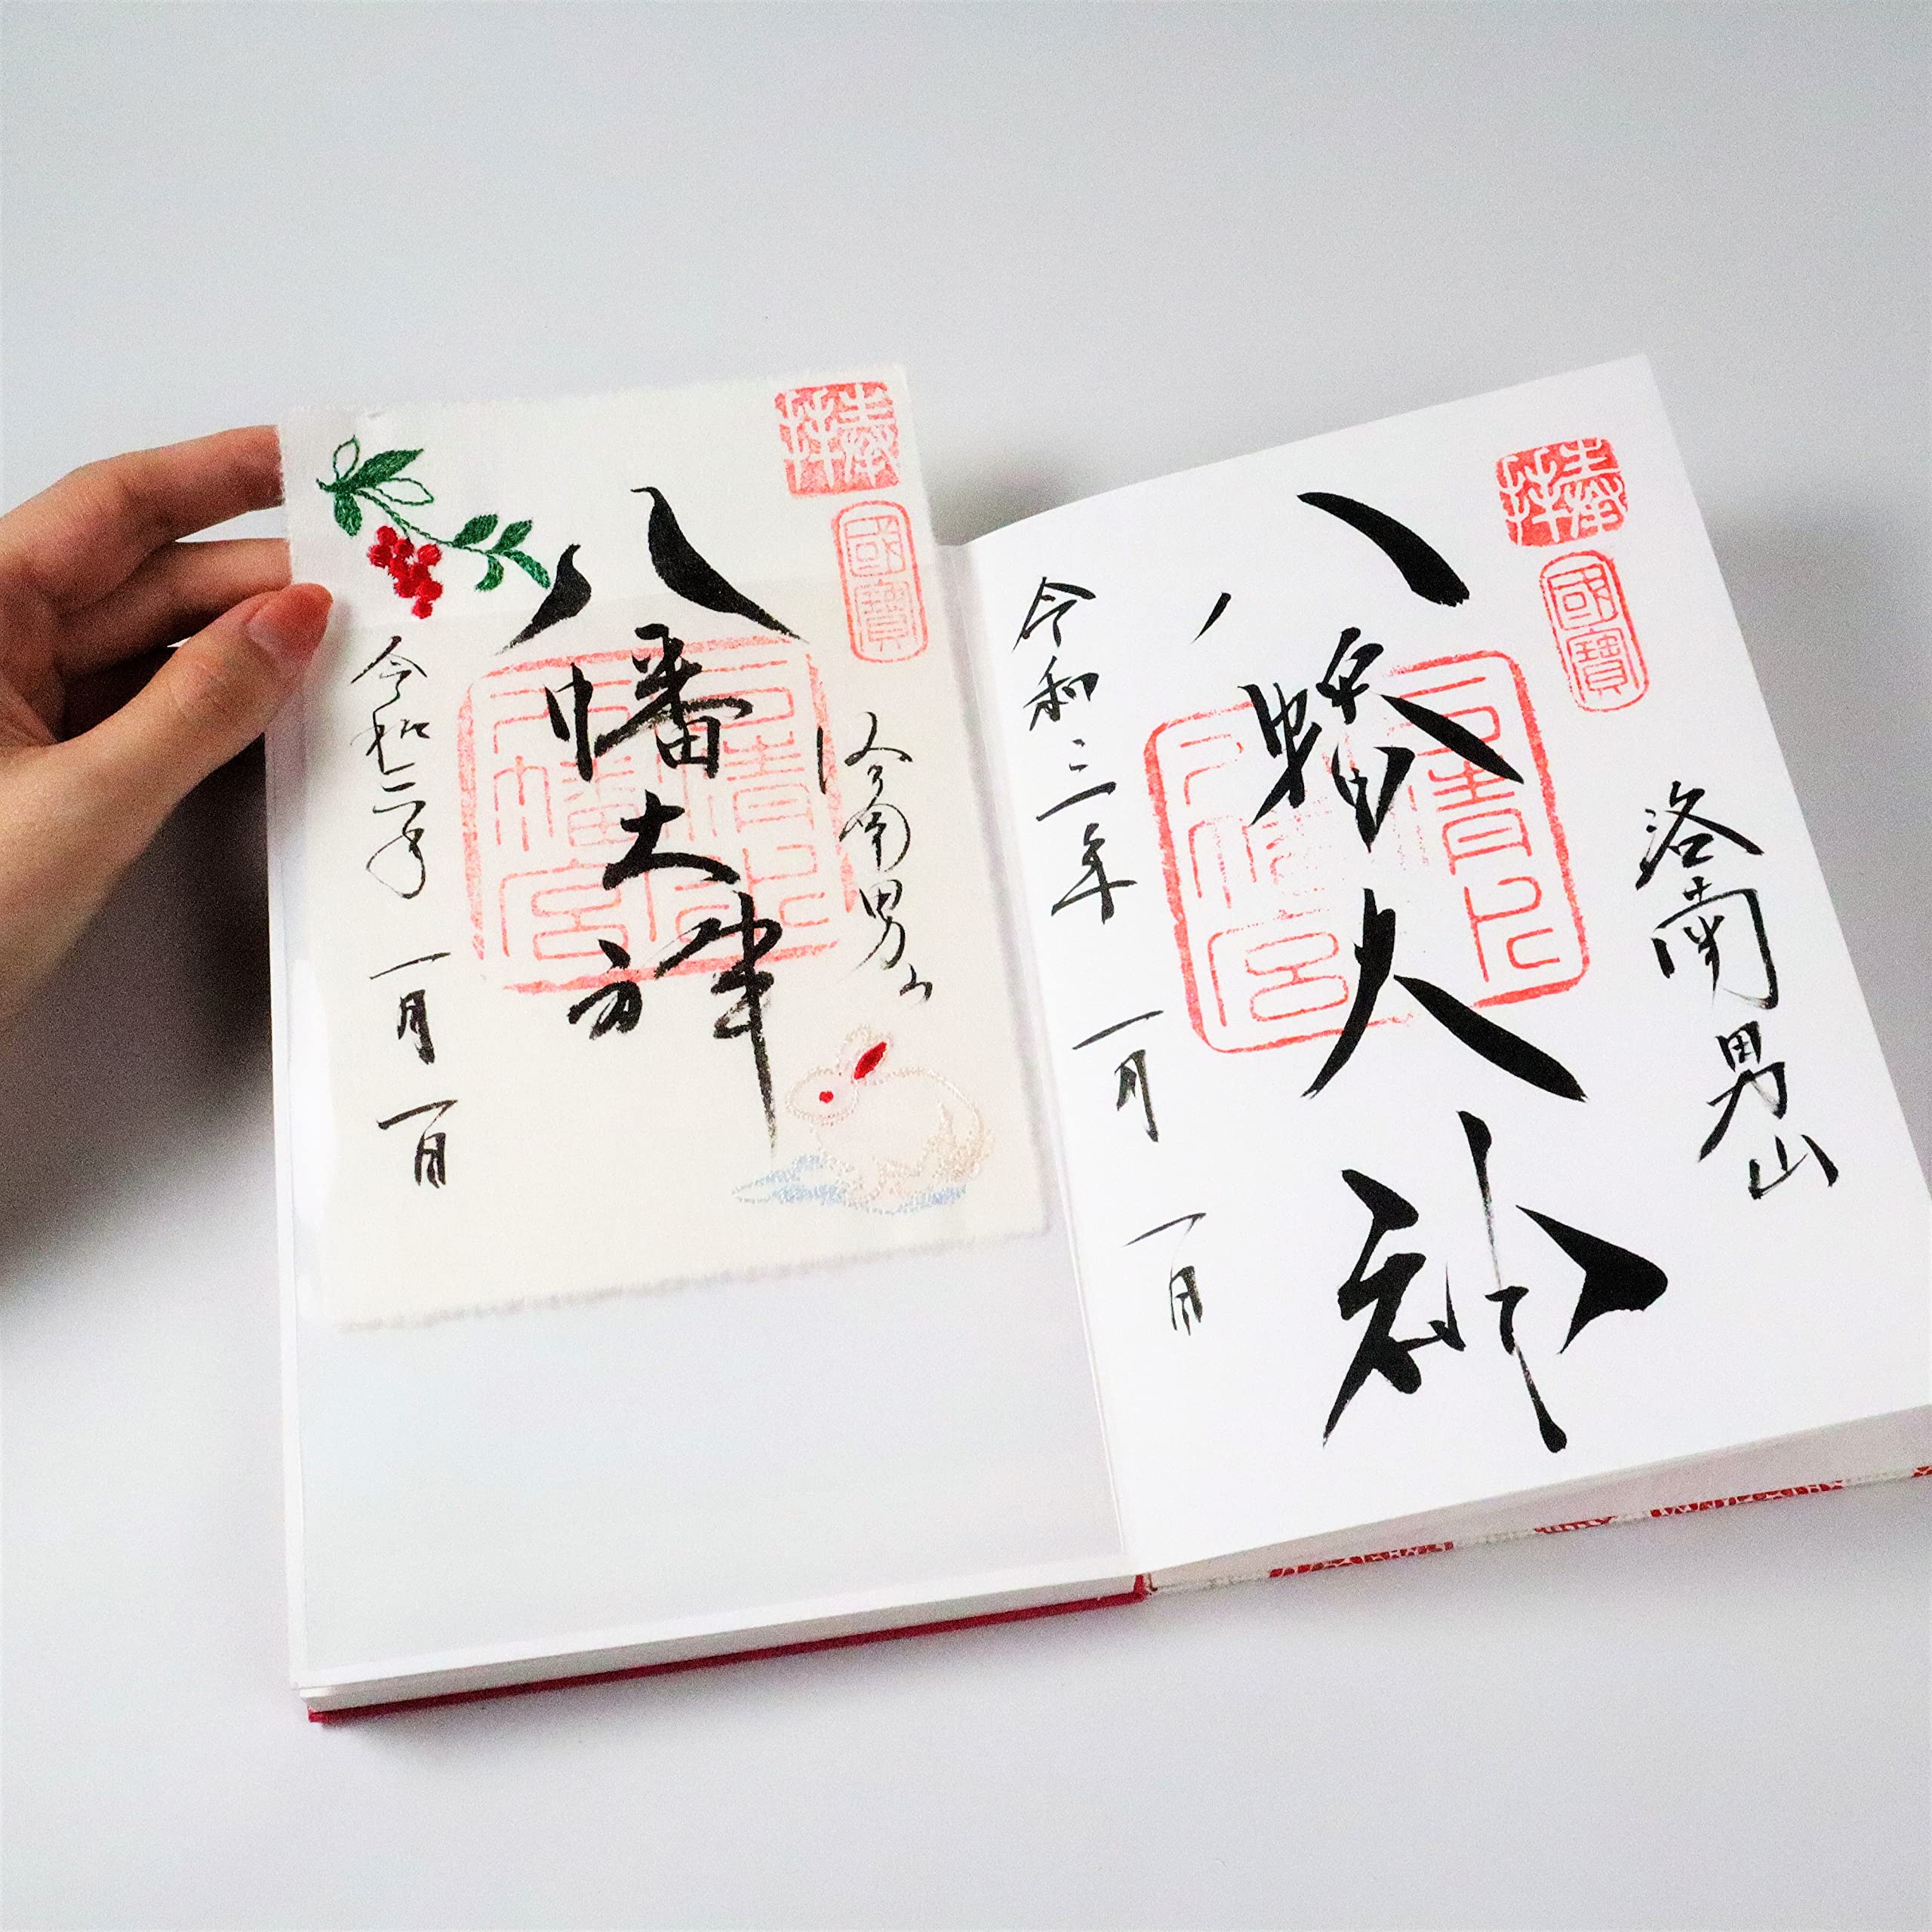 奉拝
國寶
洛南男山
八幡大神
石清水八幡宮
令和三年
一月
一日
奉拝
國寶
洛南男山
八幡大神
石清水八幡宮
令和三年
一月
一日